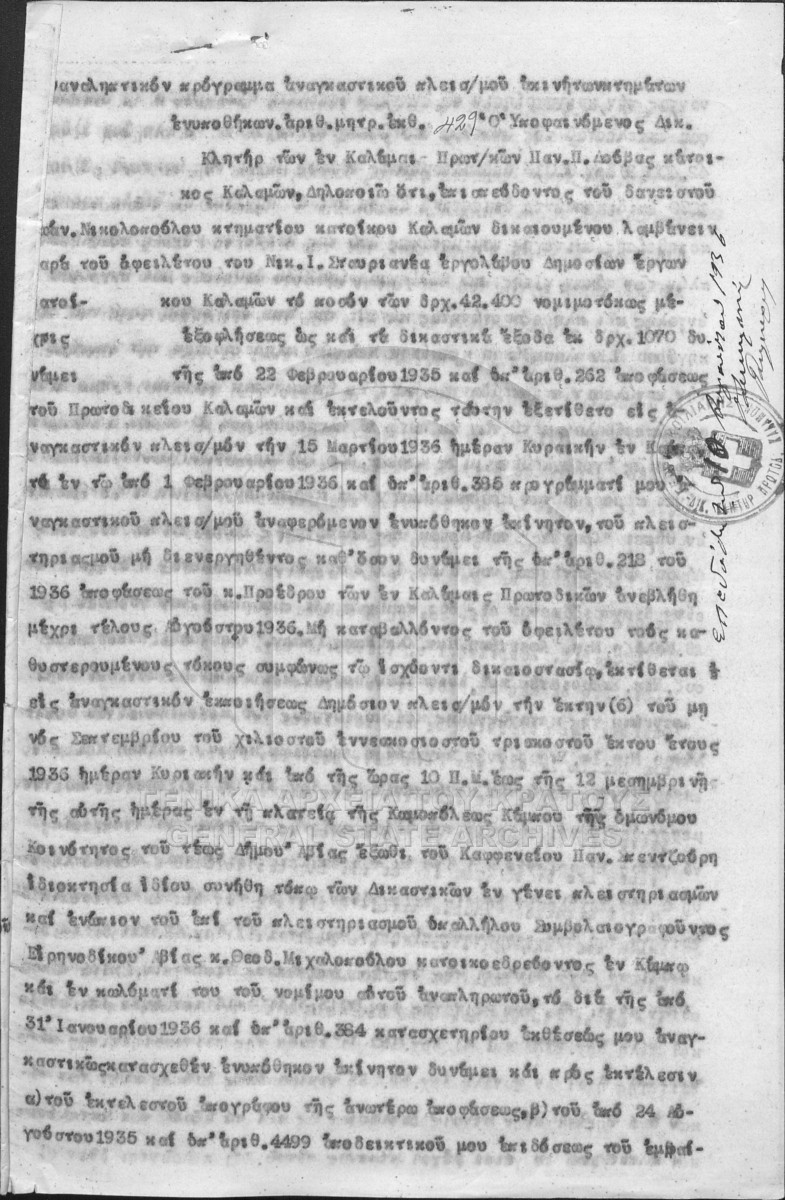 αναληπτικόν πρόγραμμα ἀναγκαστικοῦ πλεισ/μοῦ ἀκινήτωνκτημάτων
ἐνυποθήκων.ἀριθ.μητρ.ἐκθ. 429 Ὁ Ὑποφαινόμενος Δικ.
Κλητήρ τῶν ἐν Καλάμαι- Πρωτ/κῶν Παν.Π.Δούβας κάτοι-
κος Καλαμῶν,Δηλοποιῶ ὅτι,ἐπισπεύδοντος τοῦ δανειστοῦ
Νικολοπούλου κτηματίου κατοίκου Καλαμῶν δικαιουμένου λαμβάνειν
αρά τοῦ ὀφειλέτου του Νικ.Ι.Σταυριανέα ἐργολάβου Δημοσίων ἔργων
ατοί- κου Καλαμῶν τό ποσόν τῶν δρχ.42.400 νομιμοτόκως μέ-
χρις ἐξοφλήσεως ὡς καί τά δικαστικά ἔξοδα ἐκ δρχ.1070 δυ
νάμει τῆς ἀπό 22 Φεβρουαρίου1935 καί ὑπ'ἀριθ.262 ἀποφάσεως
τοῦ Πρωτοδικείου Καλαμῶν καί ἐκτελοῦντος ταύτην ἐξετίθετο εἰς ἀ-
ναγκαστικόν πλεισ/μόν τήν 15 Μαρτίου1936 ἡμέραν Κυριακήν ἐν
τό ἐν τῶ ἀπό 1 Φεβρουαρίου1936 καί ὑπ'ἀριθ.385 προγράμματί μου ἀ-
ναγκαστικοῦ πλεισ/μοῦ ἀναφερόμενον ἐνυπόθηκον ἀκίνητον,τοῦ πλεισ-
τηριασμοῦ μή διενεργηθέντος καθ'ὅσον δυνάμει τῆς ὑπ'ἀριθ.218 τοῦ
1936 ἀποφάσεως τοῦ κ.Προέδρου τῶν ἐν Καλάμαις Πρωτοδικῶν ἀνεβλήθη
μέχρι τέλους Αὐγούστου1936.Μή καταβαλλόντος τοῦ ὀφειλέτου τούς κα-
θυστερουμένους τόκους συμφώνως τῶ ἰσχύοντι δικαιοστασίῳ,ἐκτίθεται
εἰς ἀναγκαστικόν ἐκποιήσεως Δημόσιον πλεισ/μόν τήν ἕκτην(6) τοῦ μη
νός Σεπτεμβρίου τοῦ χιλιοστοῦ ἐννεακοσιοστοῦ τριακοστοῦ ἕκτου ἔτους
1936 ἡμέραν Κυριακήν καί ἀπό τῆς ὥρας 10 Π.Μ.ἕως τῆς 12 μεσημβρινῆς
τῆς αὐτῆς ἡμέρας ἐν τῇ πλατεία τῆς Κωμοπόλεως Κάμπου τῆς ὁμωνύμου
Κοινότητος τοῦ τέως Δήμου'Ἀβίας ἔξωθι τοῦ Καφφενείου Παν. Μπεντζούρη
ἰδιοκτησία ἰδίου συνήθη τόπω τῶν Δικαστικῶν ἐν γένει πλειστηριασμῶν
καί ἐνώπιον τοῦ ἐπί τοῦ πλειστηριασμοῦ ὑπαλλήλου Συμβολαιογραφοῦντος
Εἰρηνοδίκου'Ἀβίας κ.Θεοδ.Μιχαλοπούλου κατοικοεδρεύοντος ἐν Κάμπω
κάι ἐν κωλύματί του τοῦ νομίμου αὐτοῦ ἀναπληρωτοῦ,τό διά τῆς ἀπό
31'Ιανουαρίου1936 καί ὑπ'ἀριθ.384 κατασχετηρίου ἐκθέσεώς μου ἀναγ-
καστικῶςκατασχεθέν ἐνυπόθηκον ἀκίνητον δυνάμει κάι πρός ἐκτέλεσιν
α)τοῦ ἐκτελεστοῦ ἀπογράφου τῆς ἀνωτέρω ἀποφάσεως,β)τοῦ ἀπό 24 Αὐ-
γούστου1935 καί ὑπ'ἀριθ.4499 ἀποδεικτικοῦ μου ἐπιδόσεως τοῦ ἐμφαί-
ΓΕΝΙΚΑ ΑΡΧΕΙΑ ΤΟΥ ΚΡΑΤΟΥΣ
GENERAL STATE ARCHIVES